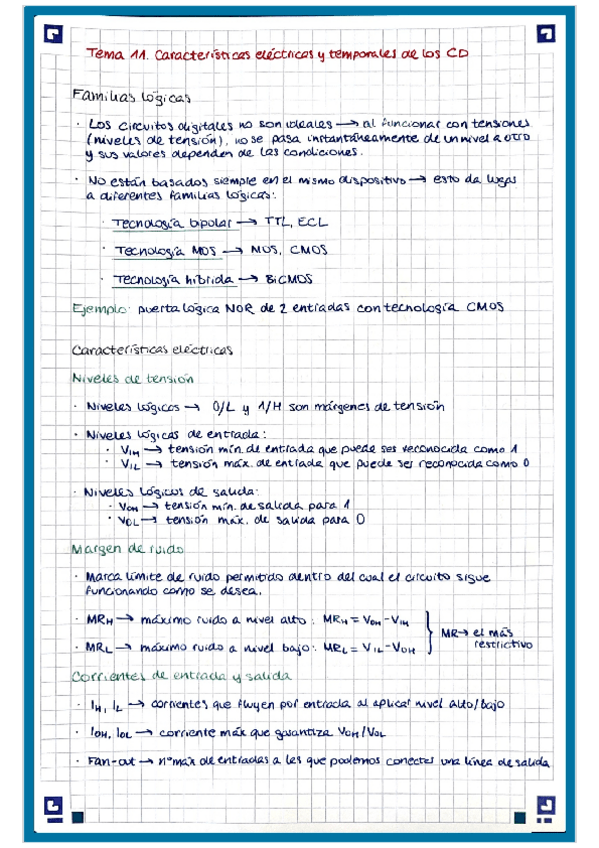 Tema 11. Características eléctricas y temporales de los CD
Familias lógicas
· Los circuitos digitales no son ideales → al funcionar con tensiones
(niveles de tensión), no se pasa instantáneamente de un nivel a otro
y sus valores dependen de las condiciones.
· No están basados siempre en el mismo dispositivo → esto da lugar
a diferentes familias lógicas:
· Tecnología bipolar → TTL, ECL
· Tecnología MOS → MOS, CMOS
· Tecnología híbrida → BiCMOS
Ejemplo: puerta lógica NOR de 2 entradas con tecnología CMOS
Características eléctricas
Niveles de tensión
· Niveles lógicos → 0/L y 1/H son márgenes de tensión
· Niveles lógicos de entrada:
· VIH → tensión mín. de entrada que puede ser reconocida como 1
· VIL → tensión máx. de entrada que puede ser reconocida como 0
· Niveles lógicos de salida:
· VOH → tensión mín. de salida para 1
· VOL → tensión máx. de salida para 0
Margen de ruido
· Marca límite de ruido permitido dentro del cual el circuito sigue
funcionando como se desea.
· MRH → máximo ruido a nivel alto: MRH = VOH - VIH
· MRL → máximo ruido a nivel bajo: MRL = VIL - VOH
MR → el más
restrictivo
Corrientes de entrada y salida
· IH, IL → corrientes que fluyen por entrada al aplicar nivel alto/bajo
· IOH, IOL → corriente máx que garantiza VOH/VOL
· Fan-out → nº máx de entradas a les que podemos conectar una línea de salida